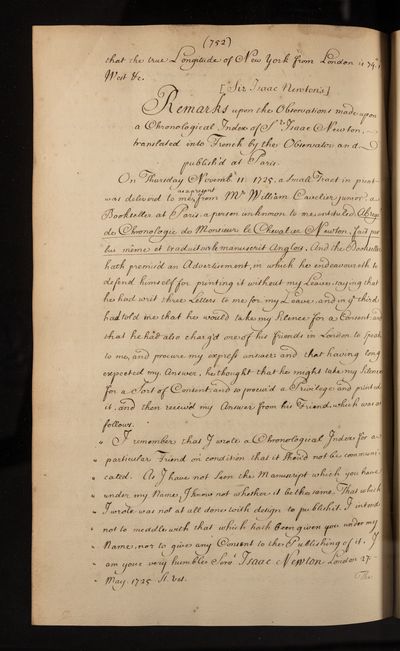 (752)
that the true Longitude of New York from London is 74.
West &c.
[Sir Isaac Newton's]
Remarks upon the Observations made upon
a Chronological Index of Sr. Isaac Newton,
translated into French by the Observator and
publish'd at Paris.
On Thursday Novembr. 11. 1725. a small Tract in print
as a present
was deliver'd to me, from Mr. William Cavelier junior, a
Bookseller at Paris, a person unknown to me, entituled Abregé
de Chronologie de Monsieur le Chevalier Newton, fait par
lui même et traduit sur le manuscrit Anglois. And the Bookseller
hath premis'd an Advertisement, in which he endeavoureth to
defend himself for printing it without my Leave: saying that
he had writ three Letters to me for my Leave, and in ye third
had told me that he would take my Silence for a Consent, and
that he had also charg'd one of his Friends in London to speak
to me, and procure my express answer: and that having long
expected my Answer, he thought that he might take my Silence
for a Sort of Consent; and so procur'd a Privilege and printed
it. and then receiv'd my Answer from his Friend, which was as
follows.
" I remember that I wrote a Chronological Index for a
" particular Friend on condition that it should not be communi-
" cated. As I have not seen the Manuscript which you have
" under my Name, I know not whether it be the same. That which
" I wrote was not at all done with design to publish it. I intend
" not to meddle with that which hath been given you under my
" Name, nor to give any Consent to the Publishing of it. I
" am your very humble Servt. Isaac Newton London 27
" May. 1725 St. Vet.
The